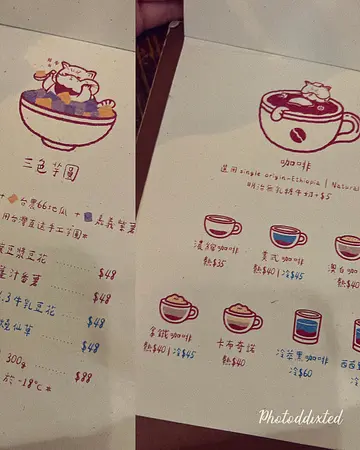 三色芋圓
+ 台農66號地瓜 + 嘉義紫薯
用台灣直送手工芋圓*
豆漿豆花 $48
薑汁番薯 $48
牛乳豆花 $48
燒仙草 $48
300g $88
於 -18°C*
咖啡
選用 single origin-Ethiopia | Natural
明治無乳糖牛奶+$5
濃縮咖啡
熱$35
美式咖啡
熱$40 | 冷$45
澳白咖啡
熱$40
拿鐵咖啡
熱$40 | 冷$45
卡布奇諾
熱$40
冷萃黑咖啡
冷$60
西西里
冷
Photoddixted